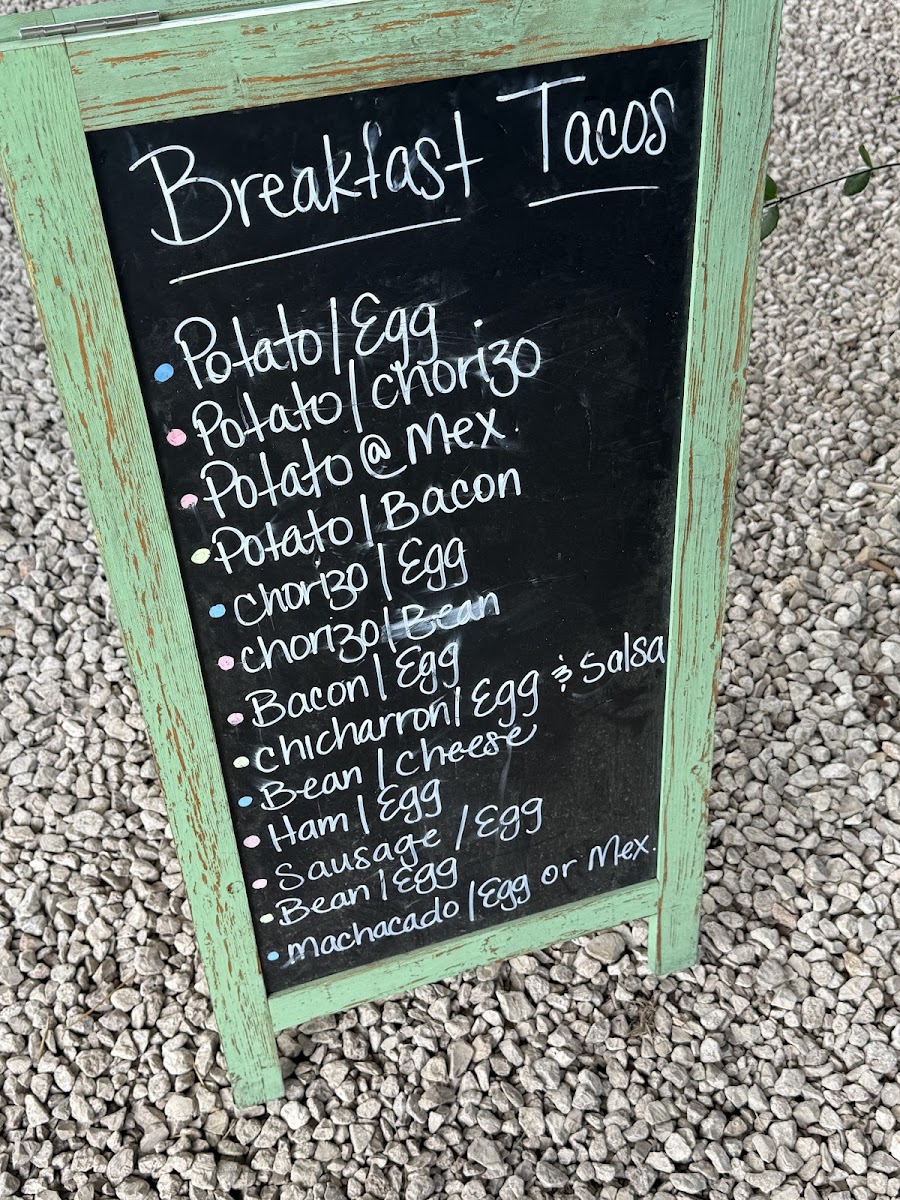 Breakfast Tacos
Potato/Egg
Potato/chorizo
Potato @ Mex.
Potato/Bacon
chorizo/Egg
chorizo/Bean
Bacon/Egg
chicharron/Egg & Salsa
Bean/cheese
Ham/Egg
Sausage/Egg
Bean/Egg
machacado/Egg or Mex.